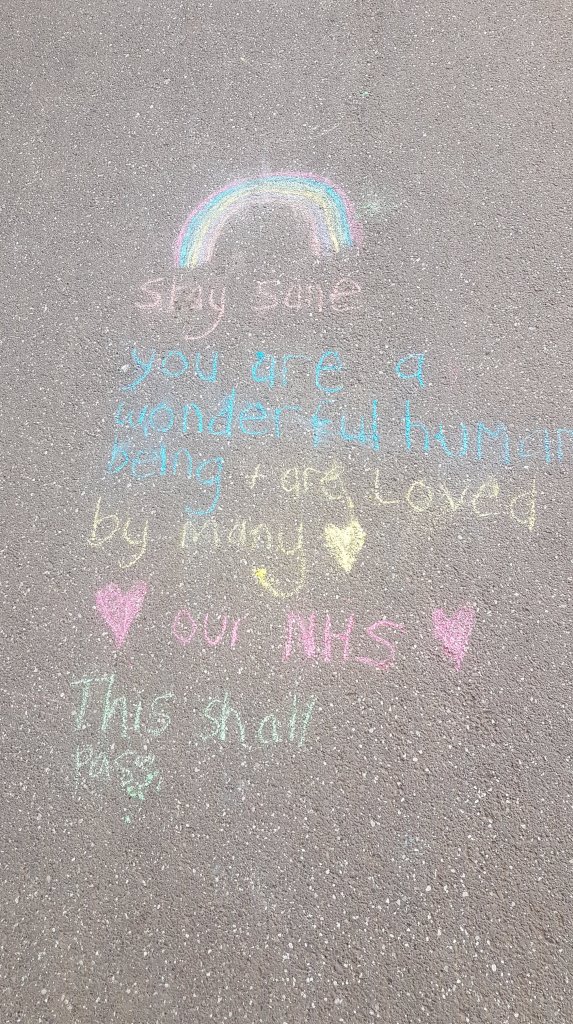 Stay sane
you are a
wonderful human
Being + are Loved
by many
our NHS
This shall
pass